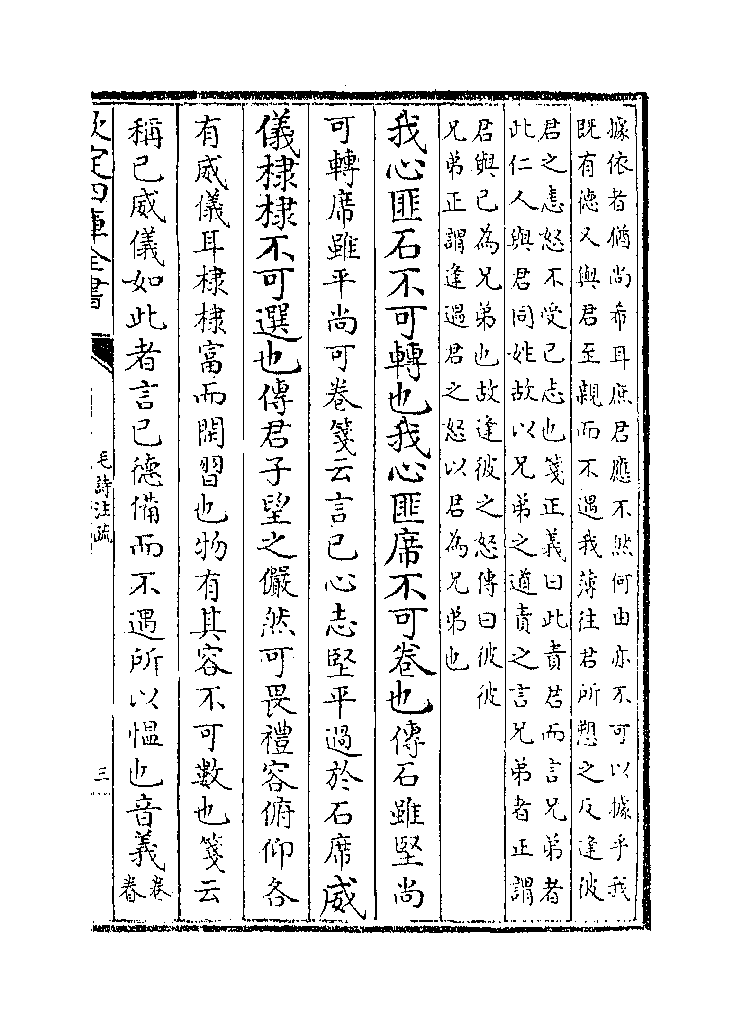 據依者猶尚希耳庶君應不然何由亦不可以據乎我
既有德又與君至親而不遇我薄往君所愬之反逢彼
君之恚怒不受已志也箋正義曰此責君而言兄弟者
此仁人與君同姓故以兄弟之道責之言兄弟者正謂
君與已為兄弟也故逢彼之怒傳曰彼彼
兄弟正謂逢遇君之怒以君為兄弟也
我心匪石不可轉也我心匪席不可卷也傳石雖堅尚
可轉席雖平尚可卷箋云言已心志堅平過於石席威
儀棣棣不可選也傳君子望之儼然可畏禮容俯仰各
有威儀耳棣棣富而閑習也物有其容不可數也箋云
稱已威儀如此者言已德備而不遇所以慍也音義卷
卷
欽定四庫全書
毛詩注疏
三